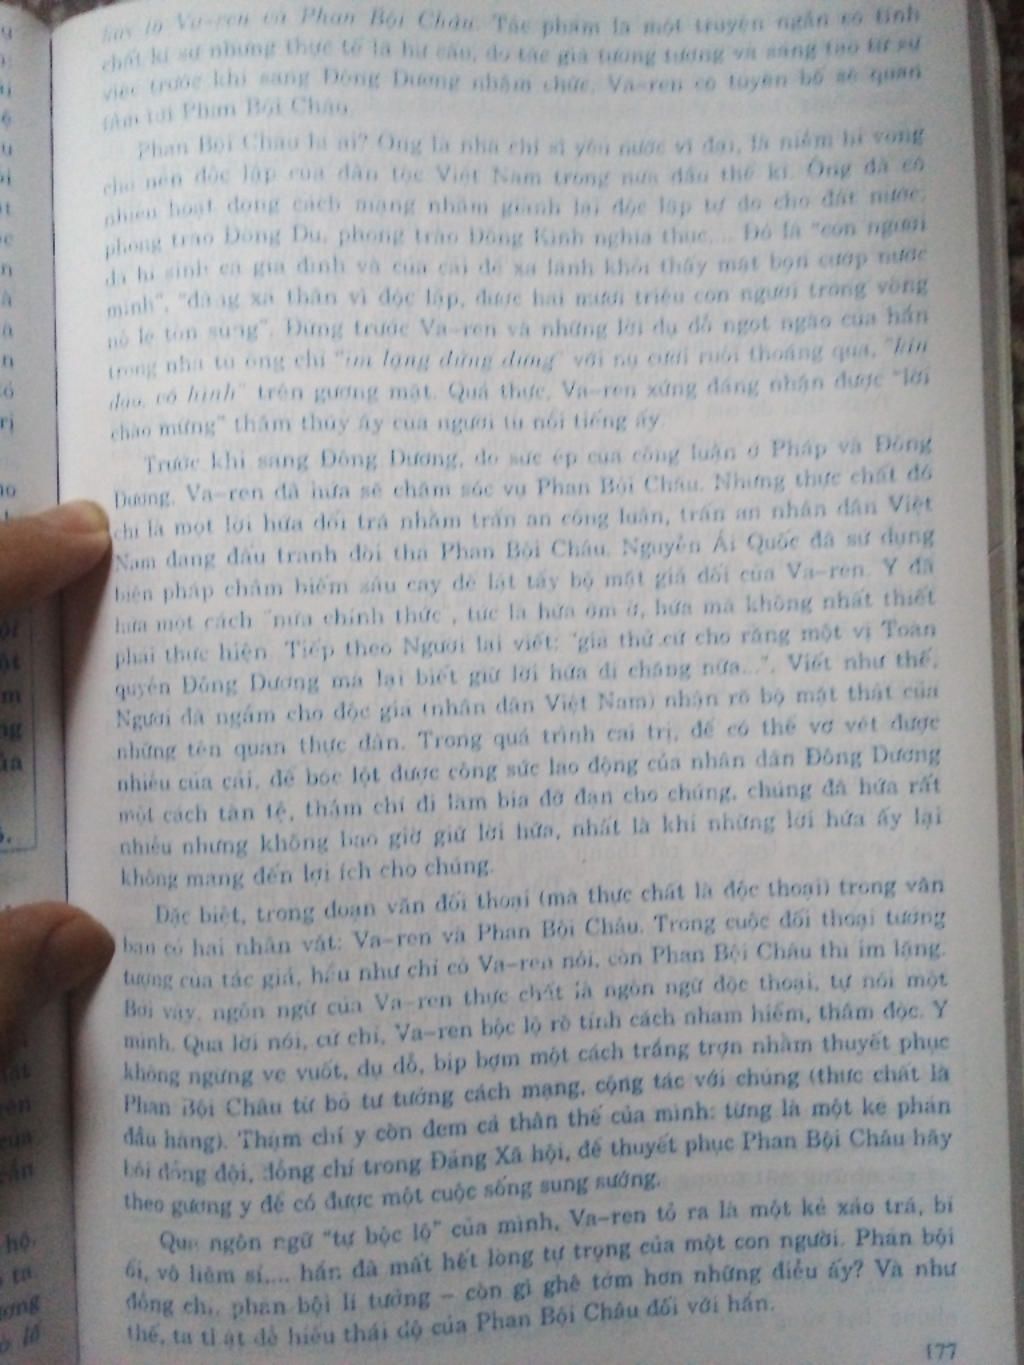 hay là Va-ren và Phan Bội Châu. Tác phẩm là một truyện ngắn có tính
chất kí sự nhưng thực tế là hư cấu, do tác giả tưởng tượng và sáng tạo từ sự
việc trước khi sang Đông Dương nhậm chức, Va-ren có tuyên bố sẽ quan
tâm tới Phan Bội Châu.
Phan Bội Châu là ai? Ông là nhà chí sĩ yêu nước vĩ đại, là niềm hi vọng
cho nền độc lập của dân tộc Việt Nam trong nửa đầu thế kỉ. Ông đã có
nhiều hoạt động cách mạng nhằm giành lại độc lập tự do cho đất nước:
phong trào Đông Du, phong trào Đông Kinh nghĩa thục,... Đó là "con người
đã hi sinh cả gia đình và của cải để xa lánh khỏi thấy mặt bọn cướp nước
mình", "đấng xả thân vì độc lập, được hai mươi triệu con người trong vòng
nô lệ tôn sùng". Đứng trước Va-ren và những lời dụ dỗ ngọt ngào của hắn
trong nhà tù ông chỉ "im lặng dửng dưng" với nụ cười ruồi thoáng qua, "kín
đáo, vô hình" trên gương mặt. Quả thực, Va-ren xứng đáng nhận được "lời
chào mừng" thâm thúy ấy của người tù nổi tiếng ấy.
Trước khi sang Đông Dương, do sức ép của công luận ở Pháp và Đông
Dương, Va-ren đã hứa sẽ chăm sóc vụ Phan Bội Châu. Nhưng thực chất đó
chỉ là một lời hứa dối trá nhằm trấn an công luận, trấn an nhân dân Việt
Nam đang đấu tranh đòi thả Phan Bội Châu. Nguyễn Ái Quốc đã sử dụng
biện pháp châm biếm sâu cay để lật tẩy bộ mặt giả dối của Va-ren. Y đã
hứa một cách "nửa chính thức", tức là hứa ỡm ờ, hứa mà không nhất thiết
phải thực hiện. Tiếp theo Người lại viết: "giả thử cứ cho rằng một vị Toàn
quyền Đông Dương mà lại biết giữ lời hứa đi chăng nữa...". Viết như thế,
Người đã ngầm cho độc giả (nhân dân Việt Nam) nhận rõ bộ mặt thật của
những tên quan thực dân. Trong quá trình cai trị, để có thể vơ vét được
nhiều của cải, để bóc lột được công sức lao động của nhân dân Đông Dương
một cách tàn tệ, thậm chí đi làm bia đỡ đạn cho chúng, chúng đã hứa rất
nhiều nhưng không bao giờ giữ lời hứa, nhất là khi những lời hứa ấy lại
không mang đến lợi ích cho chúng.
Đặc biệt, trong đoạn văn đối thoại (mà thực chất là độc thoại) trong văn
bản có hai nhân vật: Va-ren và Phan Bội Châu. Trong cuộc đối thoại tưởng
tượng của tác giả, hầu như chỉ có Va-ren nói, còn Phan Bội Châu thì im lặng.
Bởi vậy, ngôn ngữ của Va-ren thực chất là ngôn ngữ độc thoại, tự nói một
mình. Qua lời nói, cử chỉ, Va-ren bộc lộ rõ tính cách nham hiểm, thâm độc. Y
không ngừng ve vuốt, dụ dỗ, bịp bợm một cách trắng trợn nhằm thuyết phục
Phan Bội Châu từ bỏ tư tưởng cách mạng, cộng tác với chúng (thực chất là
đầu hàng). Thậm chí y còn đem cả thân thế của mình: từng là một kẻ phản
bội đồng đội, đồng chí trong Đảng Xã hội, để thuyết phục Phan Bội Châu hãy
theo gương y để có được một cuộc sống sung sướng.
Qua ngôn ngữ "tự bộc lộ" của mình, Va-ren tỏ ra là một kẻ xảo trá, bỉ
ổi, vô liêm sỉ,... hắn đã mất hết lòng tự trọng của một con người. Phản bội
đồng chí, phản bội lí tưởng – còn gì ghê tởm hơn những điều ấy? Và như
thế, ta thật dễ hiểu thái độ của Phan Bội Châu đối với hắn.
177